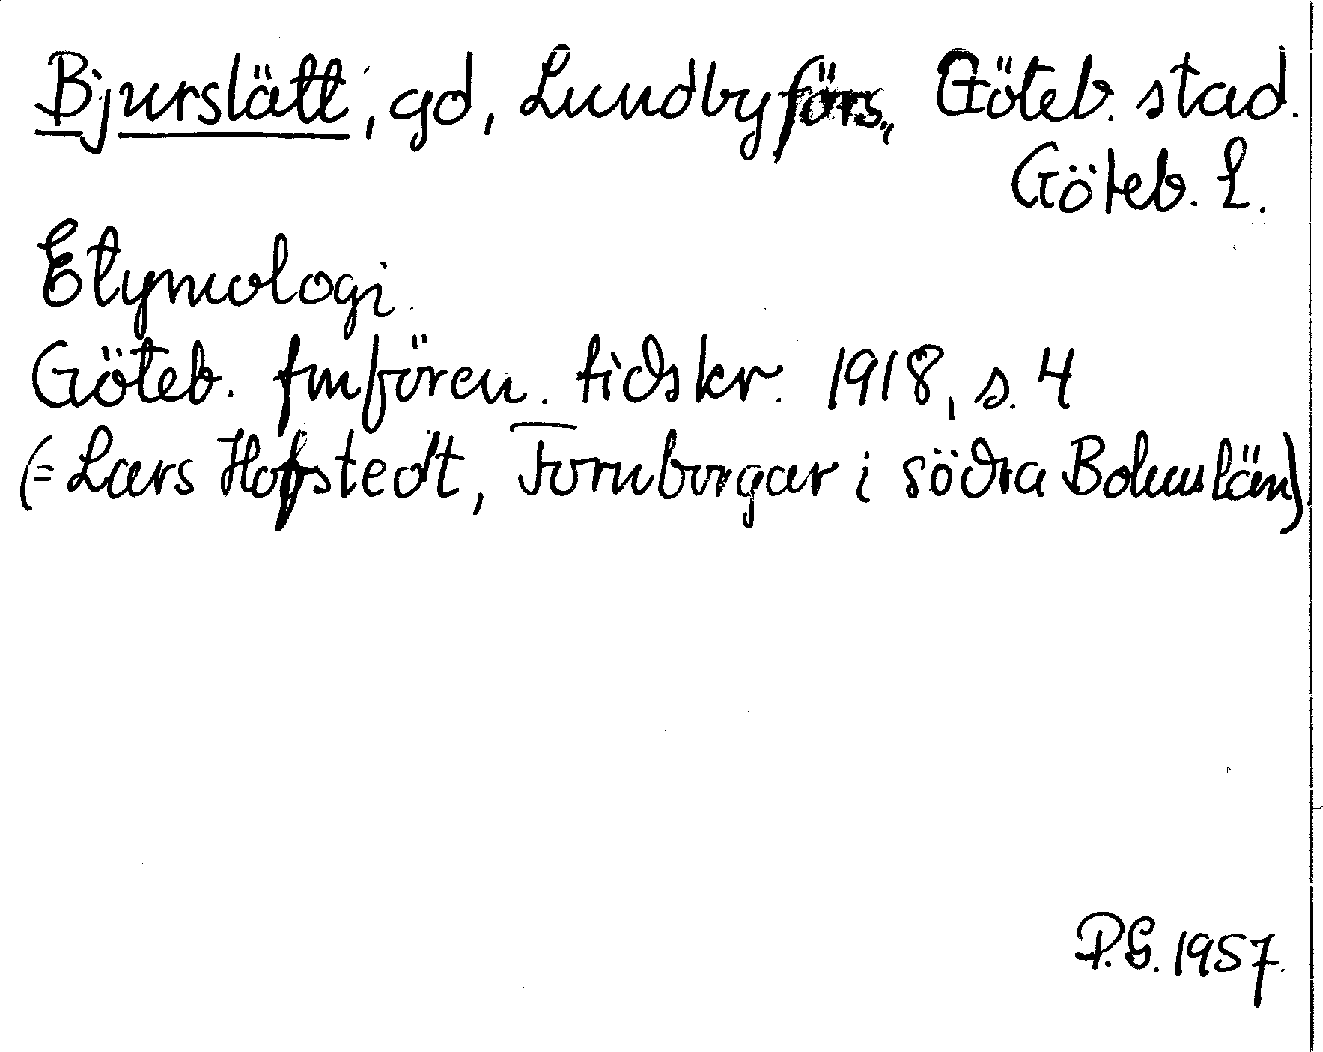 Bjurslätt, gd, Lundby förs., Göteb. stad.
Göteb. L.
Etymologi
Göteb. fmfören. tidskr. 1918, s. 4
(= Lars Hofstedt, Fornborgar i södra Bohuslän)
P.G. 1957.